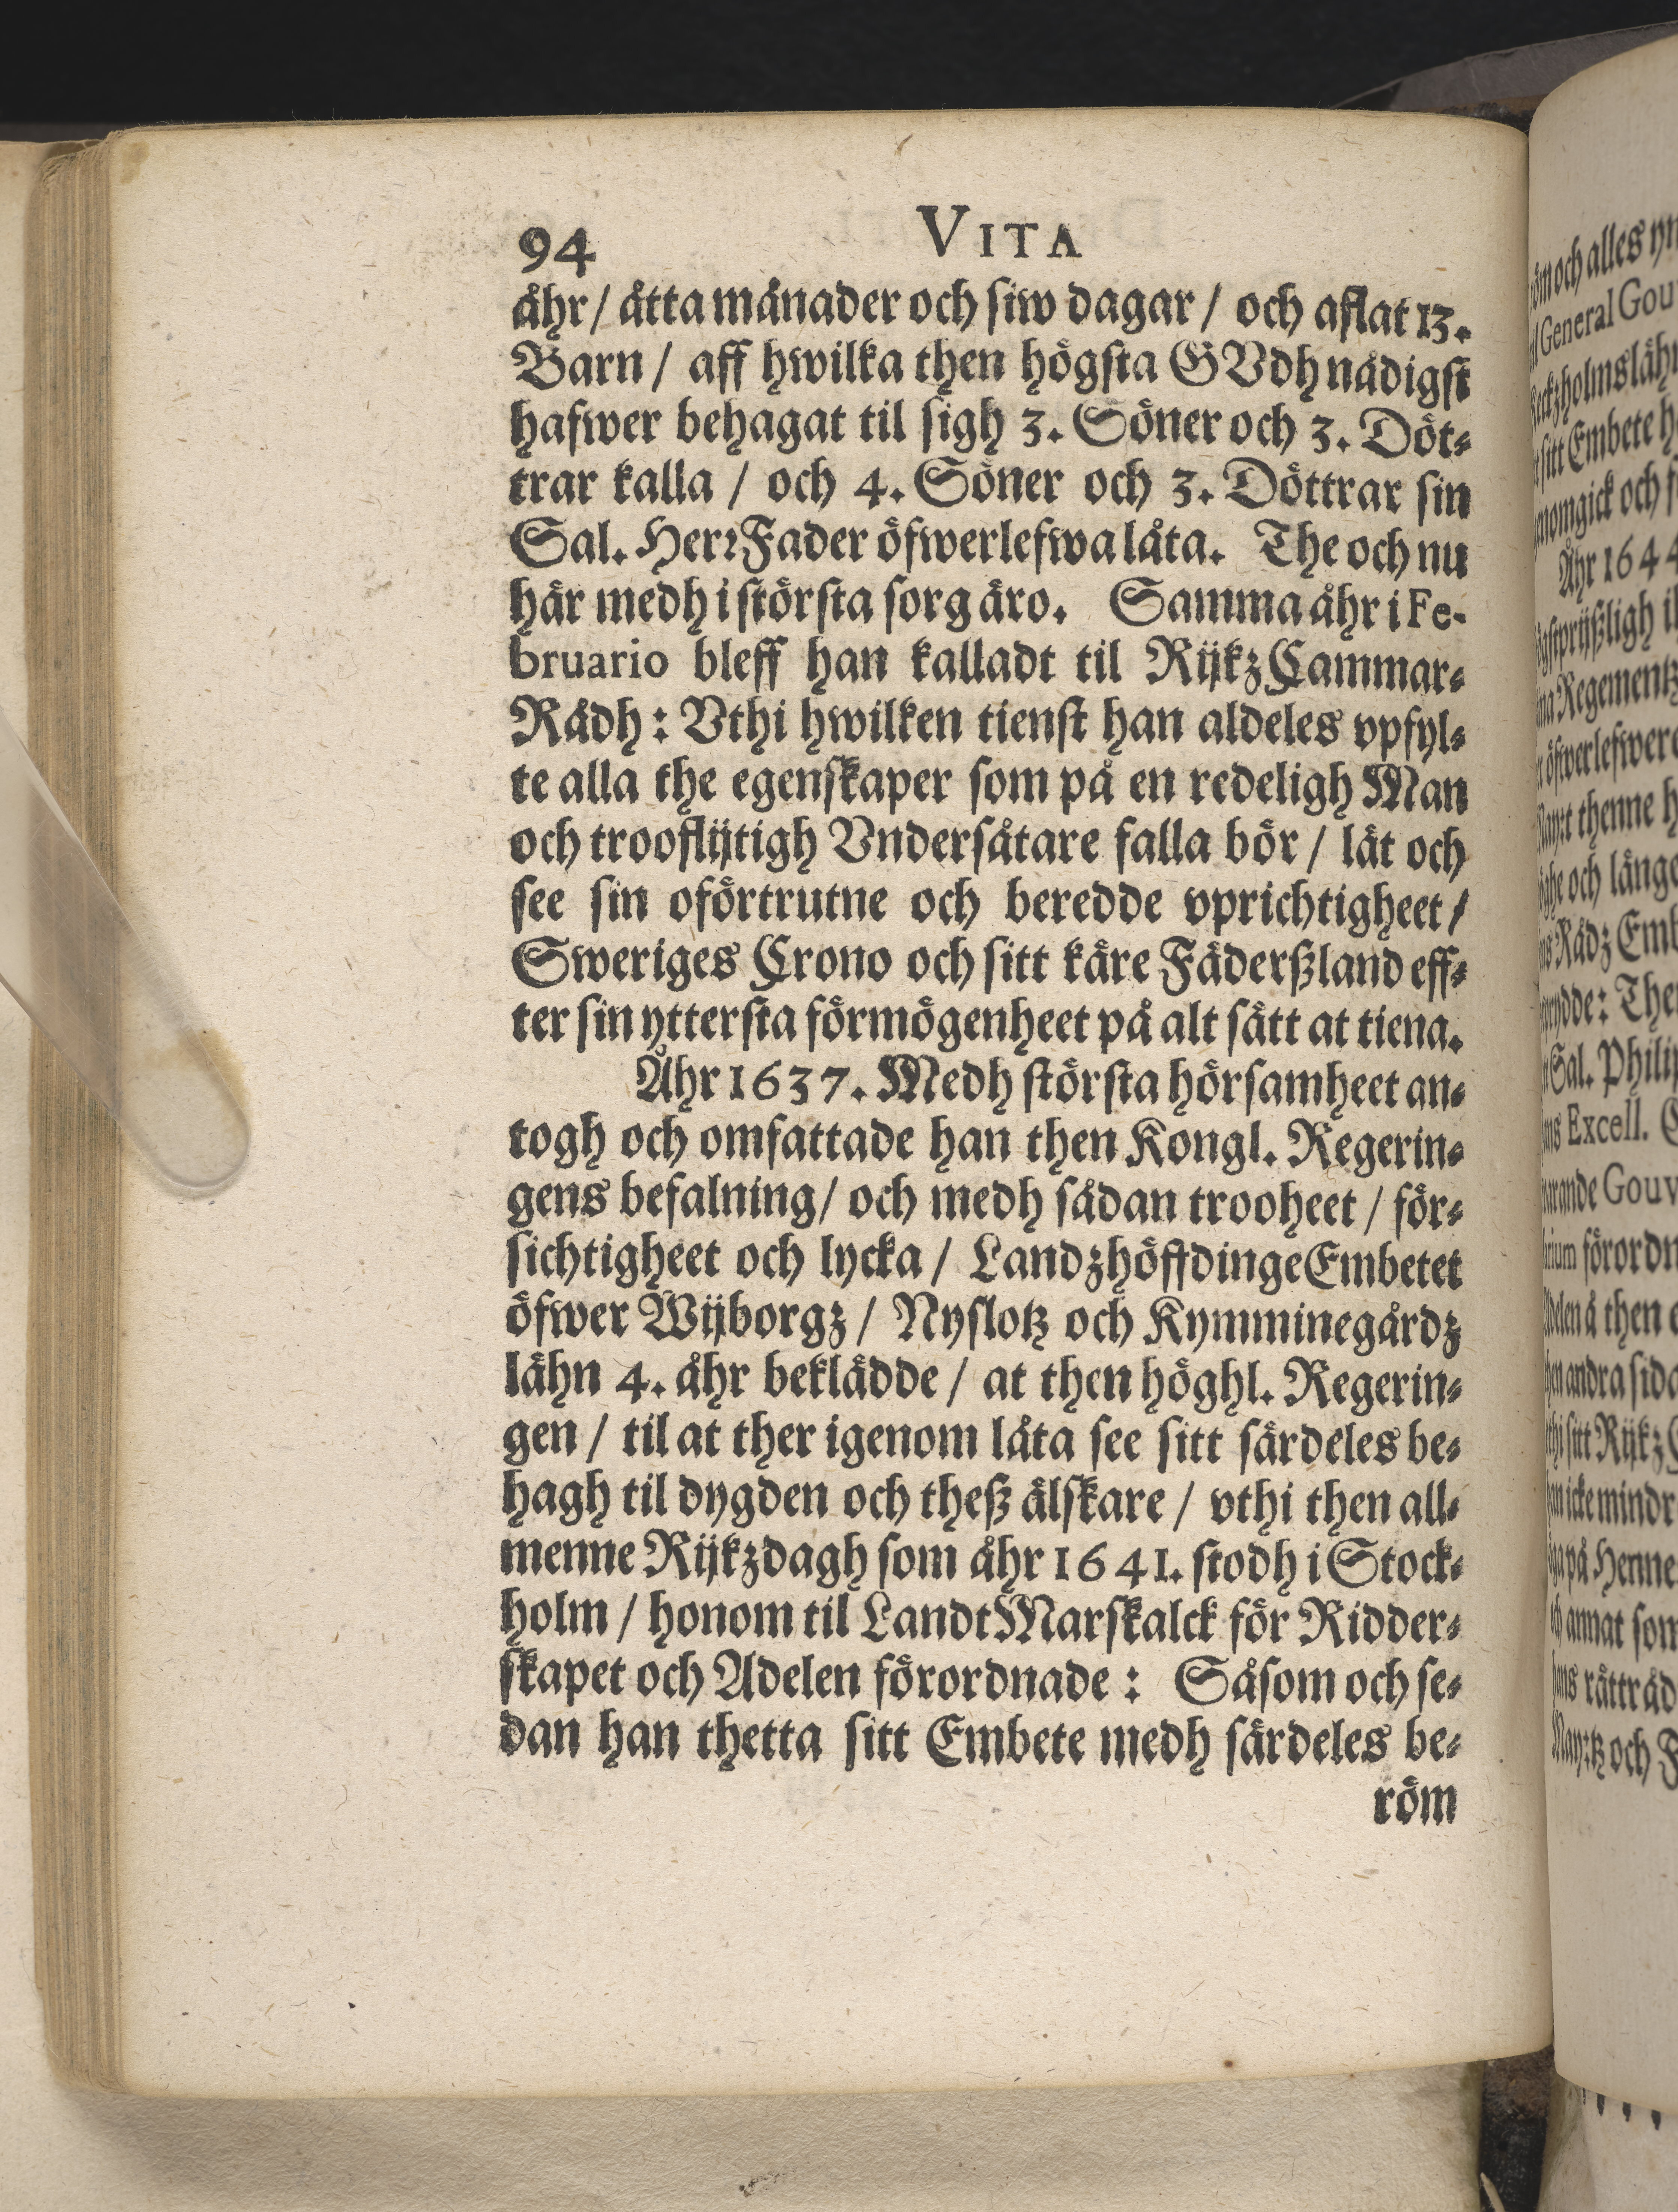 94 VITA
åhr / åtta månader och siw dagar / och aflat 13.
Barn / aff hwilka then högsta GVdh nådigst
hafwer behagat til sigh 3. Söner och 3. Döt-
trar kalla / och 4. Söner och 3. Döttrar sin
Sal. HerrFader öfwerlefwa låta. The och nu
här medh i största sorg äro. Samma åhr i Fe-
bruario bleff han kalladt til RijkzCammar-
Rådh: Vthi hwilken tienst han aldeles vpfyl-
te alla the egenskaper som på en redeligh Man
och trooflijtigh Vndersåtare falla bör / lät och
see sin oförtrutne och beredde vprichtigheet /
Sweriges Crono och sitt käre Fäderßland eff-
ter sin yttersta förmögenheet på alt sätt at tiena.
Åhr 1637. Medh största hörsamheet an-
togh och omfattade han then Kongl. Regerin-
gens befalning / och medh sådan trooheet / för-
sichtigheet och lycka / LandzhöffdingeEmbetet
öfwer Wijborgz / Nyslotz och Kymminegårdz
lähn 4. åhr beklädde / at then höghl. Regerin-
gen / til at ther igenom låta see sitt särdeles be-
hagh til dygden och theß älskare / vthi then all-
menne Rijkzdagh som åhr 1641. stodh i Stock-
holm / honom til LandtMarskalck för Ridder-
skapet och Adelen förordnade: Såsom och se-
dan han thetta sitt Embete medh särdeles be-
röm
och alles
General
Embete
och
Åhr 1644
Regementz
thenne
och länge
Rådz
Sal.
Excell.
förordn
then
andra
sitt Rijkz
icke mindr
på Henne
annat som
rättråd
och